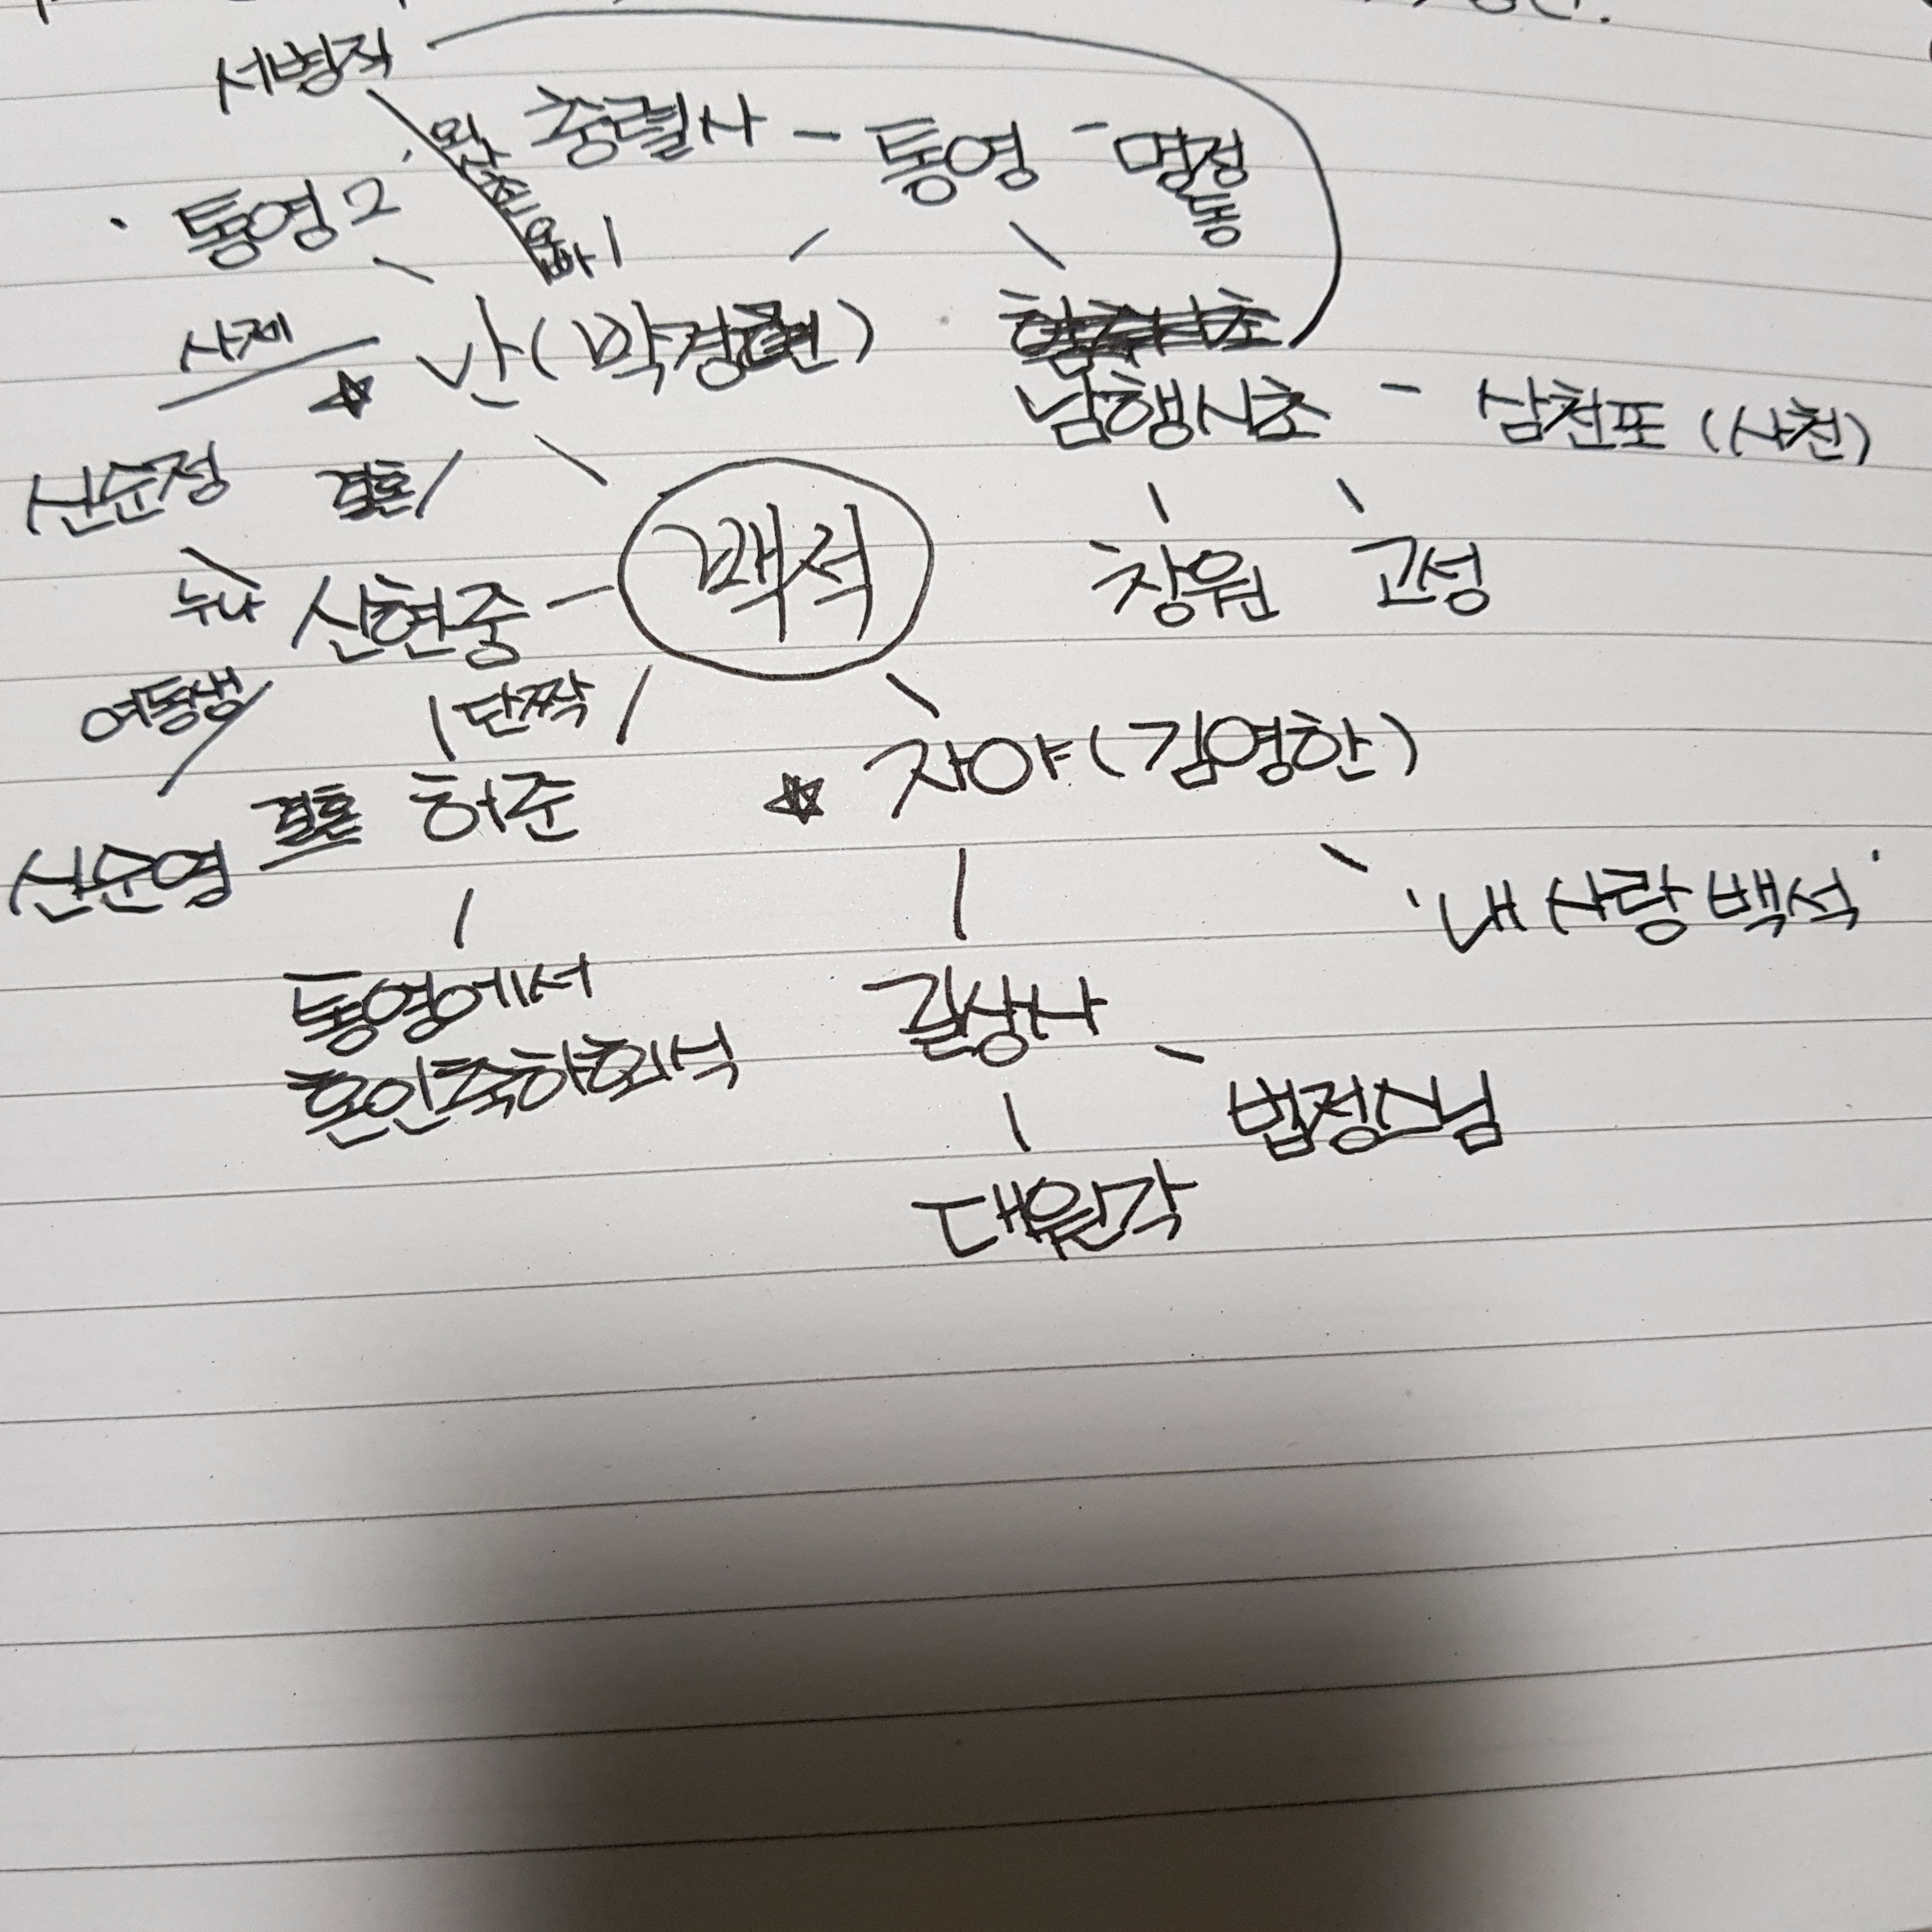 서병직
충렬사 - 통영 - 명정동
통영2
난(박경련)
사제
남행시초 - 삼천포 (사천)
신순정 결혼
백석
창원 고성
누나 신현중
여동생 단짝
자야(김영한)
신순영 결혼 허준
'내 사랑 백석'
통영에서
혼인축하회식
길상사
법정스님
대원각